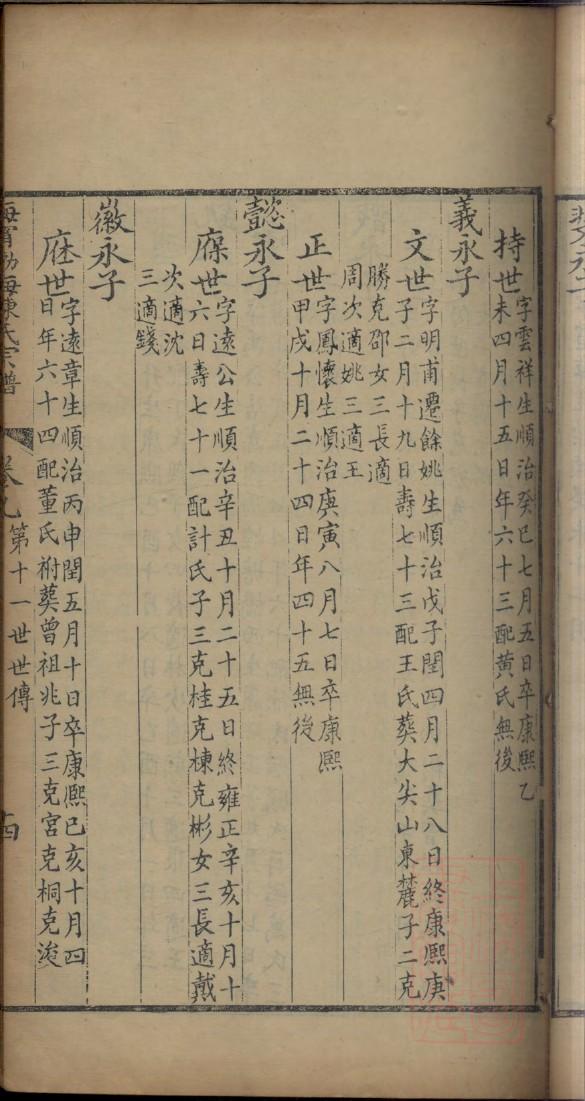 持世
字雲祥生順治癸巳七月五日卒康熙乙
未四月十五日年六十三配黄氏無後
義永子
文世
字明甫遷餘姚生順治戊子閏四月二十八日終康熙庚
子二月十九日壽七十三配王氏葬大尖山東麓子二克
勝克邵女三長適
周次適姚三適王
正世
字鳳懷生順治庚寅八月七日卒康熙
甲戌十月二十四日年四十五無後
懿永子
庽世
字遠公生順治辛丑十月二十五日終雍正辛亥十月十
六日壽七十一配計氏子三克桂克棟克彬女三長適戴
次適沈
三適錢
徽永子
世
字遠章生順治丙申閏五月十日卒康熙己亥十月四
日年六十四配董氏祔葬曾祖兆子三克宮克桐克浚
海寧渤海陳氏宗譜
卷九
第十一世世傳